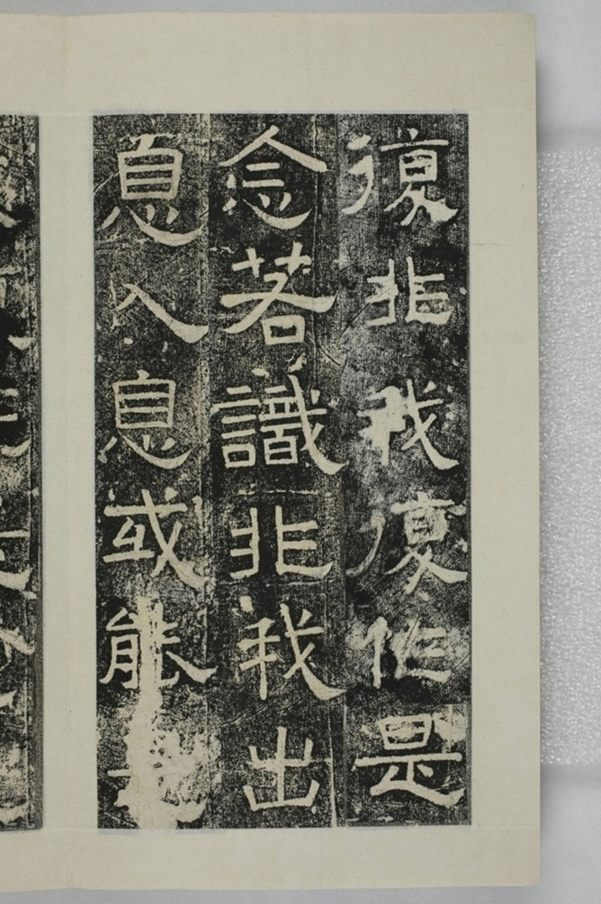 復非我復作是
念若識非我出
息入息或能